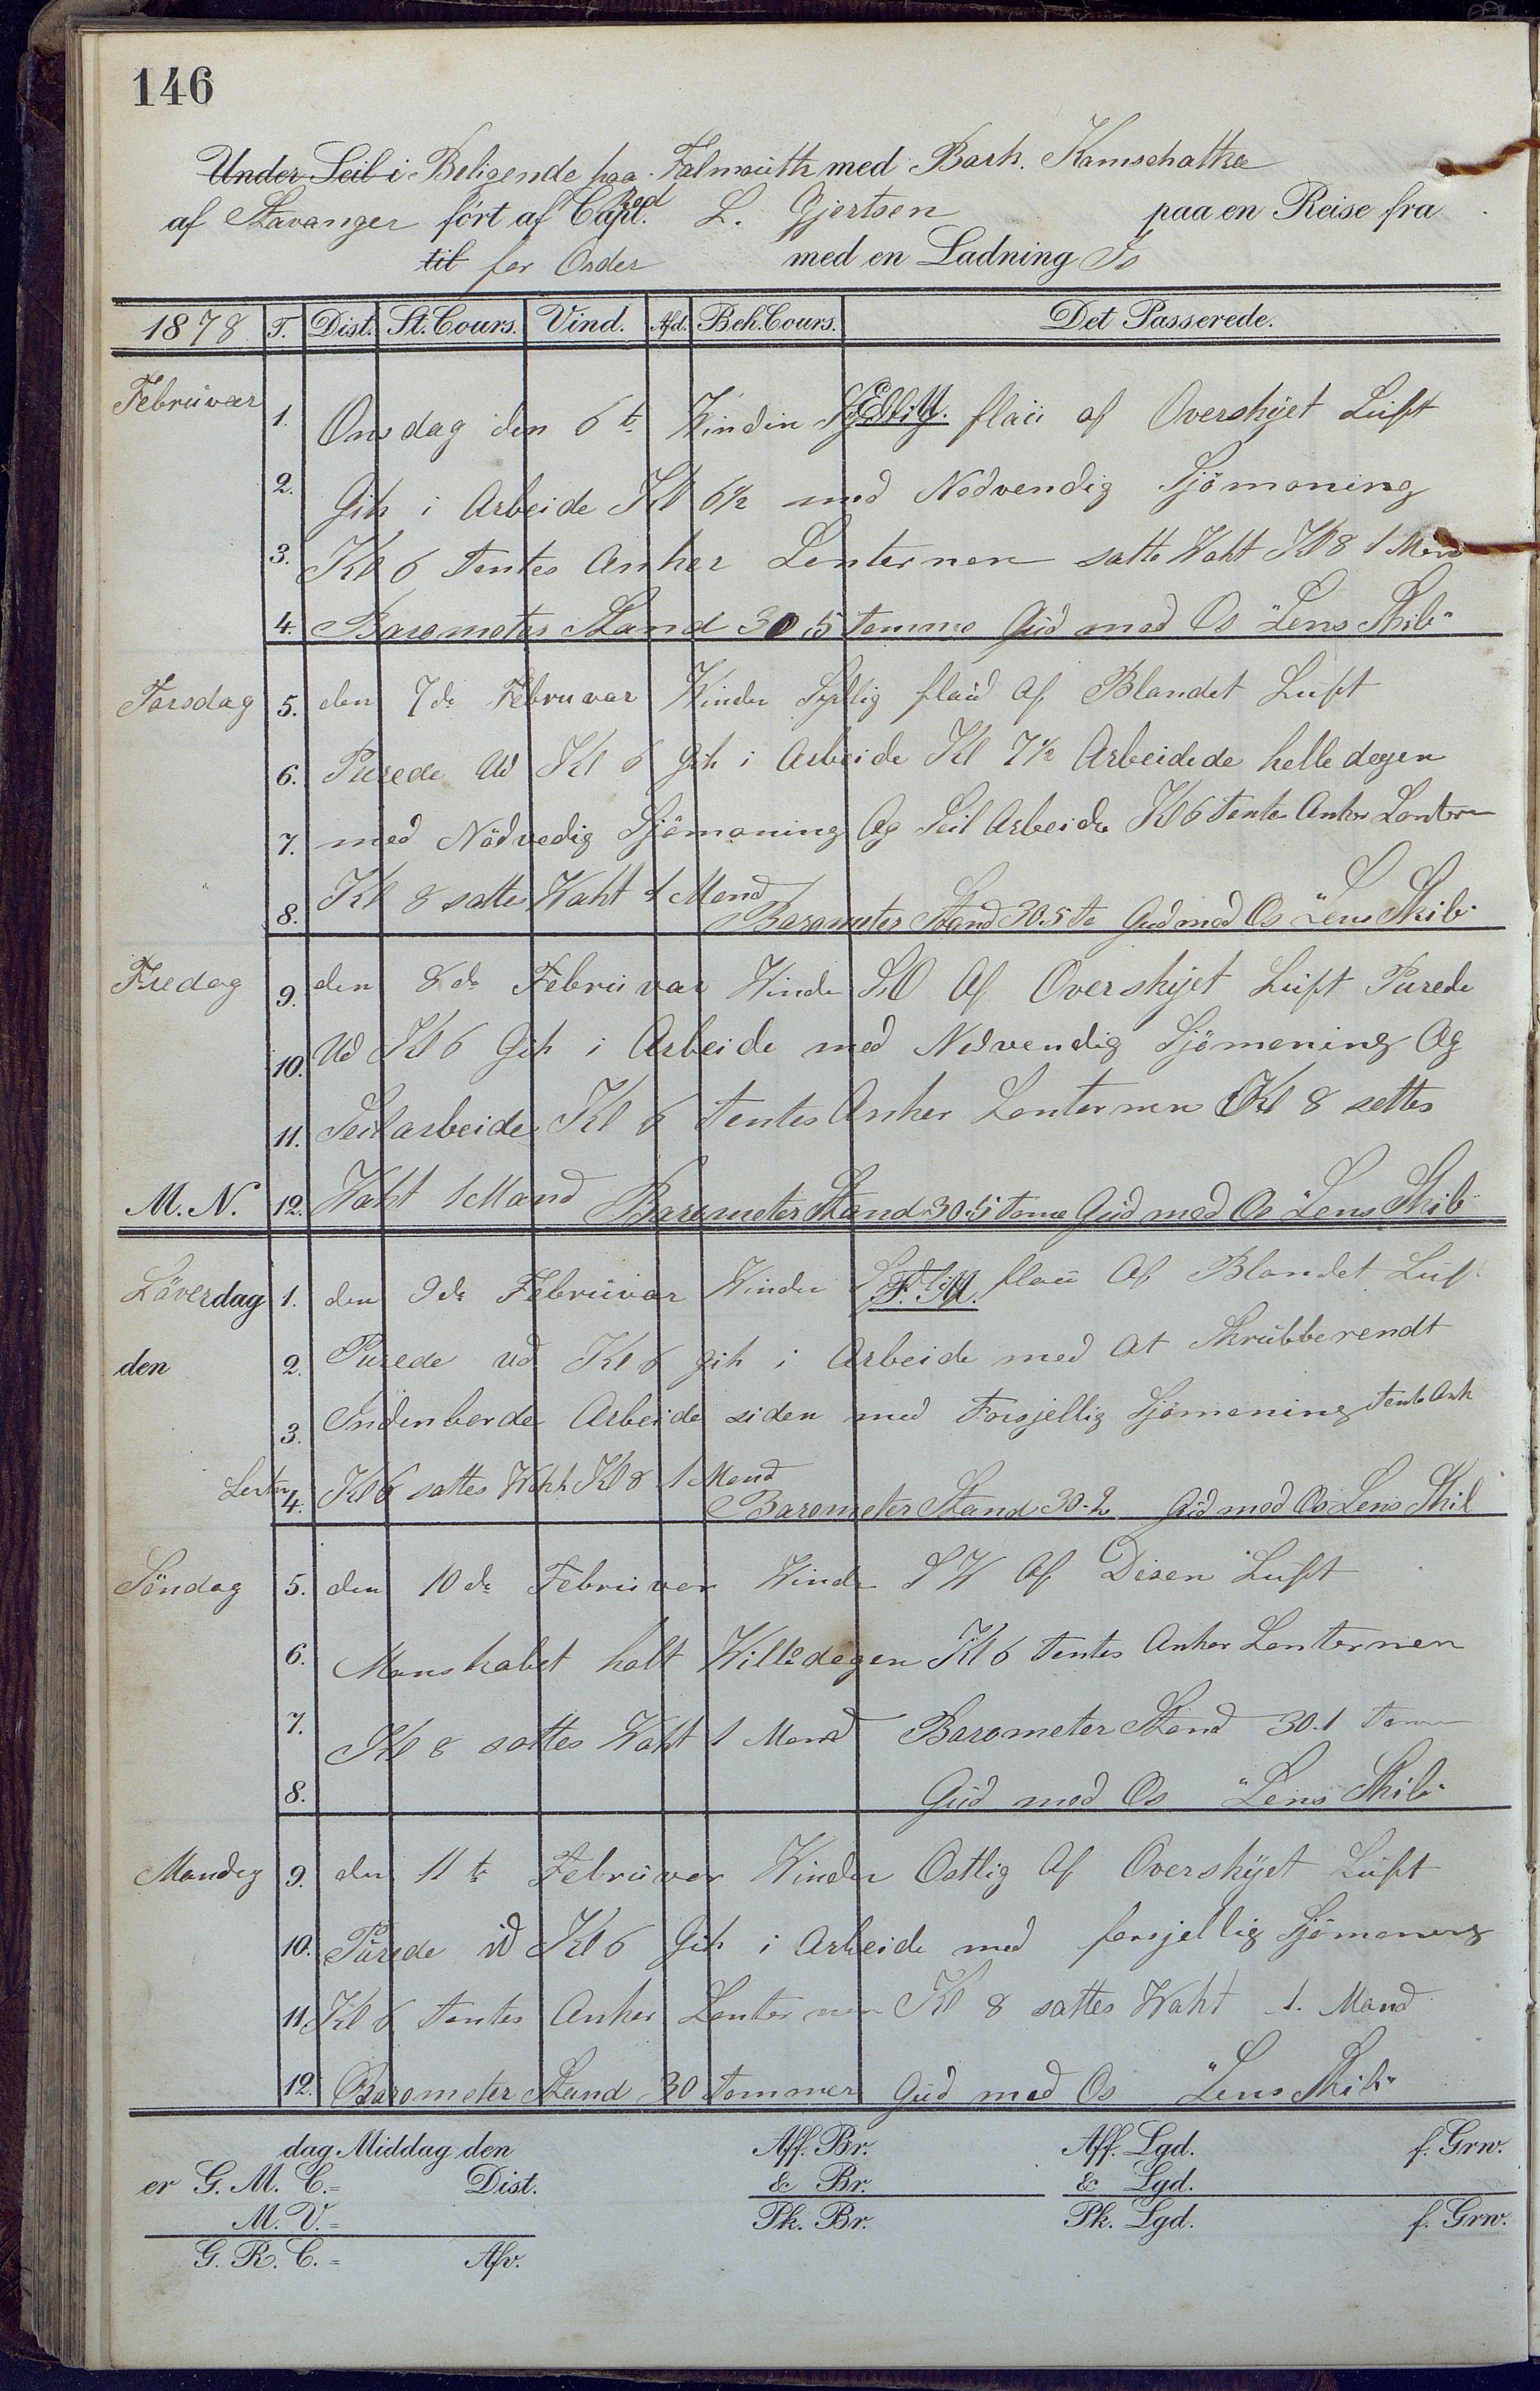 146
Under Seil i Beligende paa Falmouth med Bark. Kamschatka
Red
af Stavanger fört af Capt. L. Gjertsen paa en Reise fra
til for Order med en Ladning Is
1878 T. Dist. St. Cours. Vind. Afd. Beh. Cours. Det Passerede.
Februvar 1. Onsdag den 6te Winden Sydlig flau af Overskyet Luft
E. M.
2. Gik i Arbeide Kl 6½ med Nodvendig Sjömaning
3. Kl 6 Tentes Anker Lanternen sattes Waht Kl 8 1 Mand
4. Barometer Stand 30.5 Tomme Gud med Os "Lens Skib"
Torsdag 5. den 7de Februvar Winden Sydlig flau Af Blandet Luft
6. Purede Ud Kl 6 Gik i Arbeide Kl 7½ Arbeidede helle dagen
7. med Nödvedig Sjömaning Og Seil Arbeide Kl 6 Tentes Anker Lantern
8. Kl 8 sattes Waht 1 Mand Barometer Stand 30.5 To Gud med Os "Lens Skib"
Fredag 9. den 8de Februvar Winde SO Af Overskyet Luft Purede
10. Ud Kl 6 Gik i Arbeide med Nodvendig Sjömaning Og
11. Seilarbeide Kl 6 Tentes Anker Lanternen Kl 8 sattes
M. N. 12. Waht 1 Mand Barometer Stand 30.5 Tome Gud med Os "Lens Skib"
Löverdag 1. den 9de Februvar Winden flau Af Blandet Luf
F. M.
den 2. Purede ud Kl 6 gik i Arbeide med At Skrubberendt
3. Indenborde Arbeide siden med Forsjellig Sjömaning Tente Ank
Lanter 4. Kl 6 sattes Waht Kl 8 1 Mand Barometer Stand 30.2 Gud med Os Lens Skib
Söndag 5. den 10de Februvar Winde SW Af Disen Luft
6. Manskabet holt Willedagen Kl 6 Tentes Anker Lanternen
7. Kl 8 sattes Waht 1 Mand Barometer Stand 30.1 Tomme
8. Gud med Os "Lens Skib"
Mandag 9. den 11te Februvar Winden Ostlig Af Overskyet Luft
10. Purede ud Kl 6 Gik i Arbeide med forsjellig Sjömaning
11. Kl 6 Tentes Anker Lanternen Kl 8 sattes Waht 1. Mand
12. Barometer Stand 30 Tommer Gud med Os "Lens Skib"
dag Middag den Aff. Br. Aff. Lgd. f. Grw.
er G. M. C.= Dist. & Br. & Lgd.
M. V.= Pk. Br. Pk. Lgd. f. Grw.
G. R. C.= Afv.